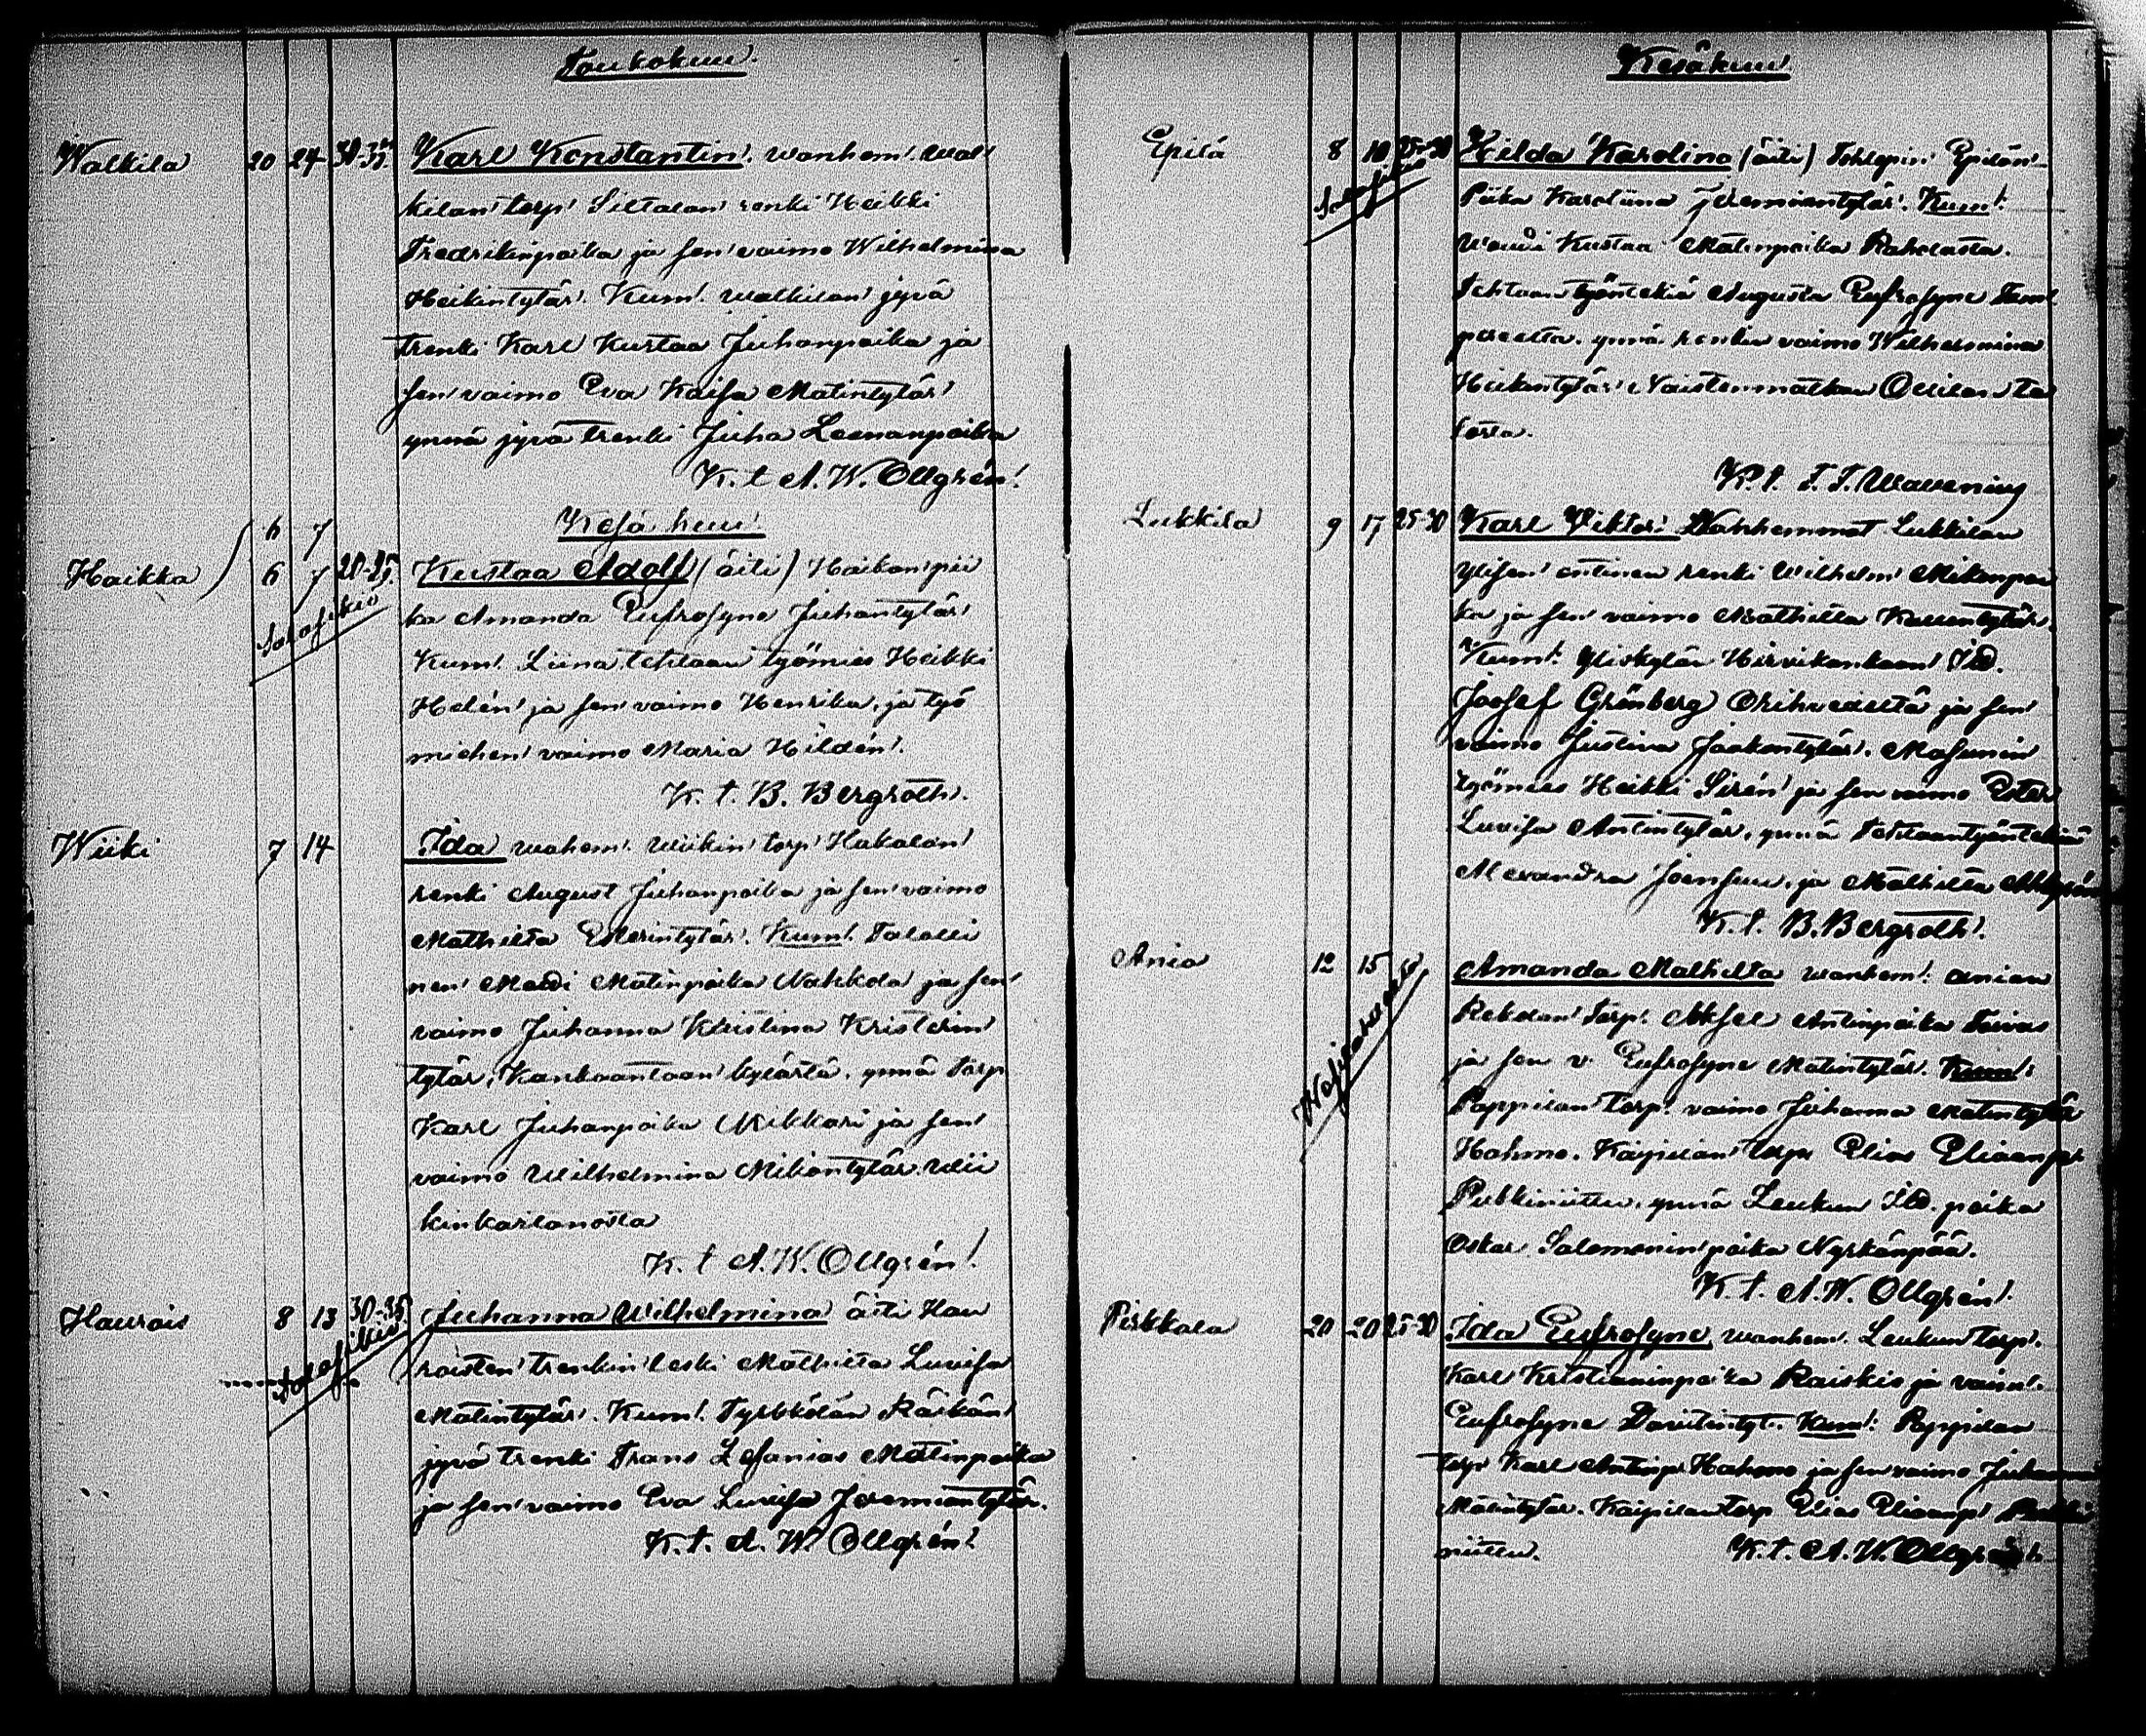 Toukokuu.
Walkila 20 24 30-35. Karl Konstantin. wanhem. Wal
kilan torp. Siltalan renki Heikki
Fredrikinpoika ja sen vaimo Wilhelmina
Heikintytär. Kum. Walkilan jyvä
trenki Karl Kustaa Juhanpoika ja
sen vaimo Eva Kaisa Matintytär
ynnä jyvä trenki Juha Leenanpoika
K. t. A. W. Ollgrén.
6 7 Kesäkuu
Haikka 6 7 20-25. Kustaa Adolf (äiti) Haikan pii
ka Amanda Eufrosyne Juhantytär
Kum. Liina tehtaan työmies Heikki
Helén ja sen vaimo Henrika, ja työ
miehen vaimo Maria Hildén.
K. t. B. Bergroth.
Wiiki 7 14 Ida wahem. Wiikin torp. Hakalan
renki August Juhanpoika ja sen vaimo
Mathilta Eskerintytär. Kum. Talolli
nen Matti Matinpoika Nahkola ja sen
vaimo Juhanna Kristina Kristerin
tytär, Kankaantaan kylästä, ynnä torp
Karl Juhanpoika Mikkari ja sen
vaimo Wilhelmina Mikontytär Wii
kinkartanosta
K. t. A. W. Ollgrén.
Haurais 8 13 30-35. Juhanna Wilhelmina äiti Hau
raisten trenkin leski Mathilta Luvisa
Matintytär. Kum. Tyrkkölän Räikän
jyvä trenki Frans Esanias Matinpoika
ja sen vaimo Eva Luvisa Jeremiantytär.
K. t. A. W. Ollgrén.
Kesäkuu
Epilä 8 10 25-30 Hilda Karolina (äiti) Tohlopin Epilän
Piika Karoliina Jeremiantytär. Kum:
Wouti Kustaa Matinpoika Raholasta.
Tehtaan työntekiä Augusta Eufrosyne Tam
pereelta. ynnä renkin vaimo Wilhelmina
Heikintytär Naistenmatkan Ollilan ta
losta.
K. t. F. F. Wavening
Lukkila 9 17 25-30 Karl Viktor. Wanhemmat Lukkilan
ylisen entinen renki Wilhelm Mikonpoi
ka ja sen vaimo Mathilta Kallentytär.
Kum: Yliskylän Hirvikankaan Itd.
Joosef Grönberg Orihvedeltä ja sen
vaimo Justina Jaakontytär. Masunin
työmies Heikki Sirén ja sen vaimo Ester
Luvisa Antintytär, ynnä Tehtaantyöntekiä
Alexandra Joensuu, ja Mathilta Ahlgrén
K. t. B. Bergroth.
Ania 12 15 Amanda Mathilta wanhem. Anian
Rekolan torp. Aksel Antinpoika Toivas
ja sen v. Eufrosyne Matintytär. Kum:
Pappilan torp. vaimo Juhanna Matintytär
Hahmo. Kaipilan torp Elias Eliaanp.
Pukkiniittu, ynnä Leukun Itd. poika
Oskar Salomoninpoika Nyrkönpää.
K. t. A. W. Ollgrén.
Pirkkala 20 20 25-30 Ida Eufrosyne wanhem. Leukun torp.
Karl Kristianinpoika Raiskio ja vaim.
Eufrosyne Davitintyt. Kum: Pappilan
torp Karl Antinp. Hahmo ja sen vaimo Juhanna
Matintytär. Kaipilan torp Elias Eliaanp. Pukki
niittu. K. t. A. W. Ollgrén